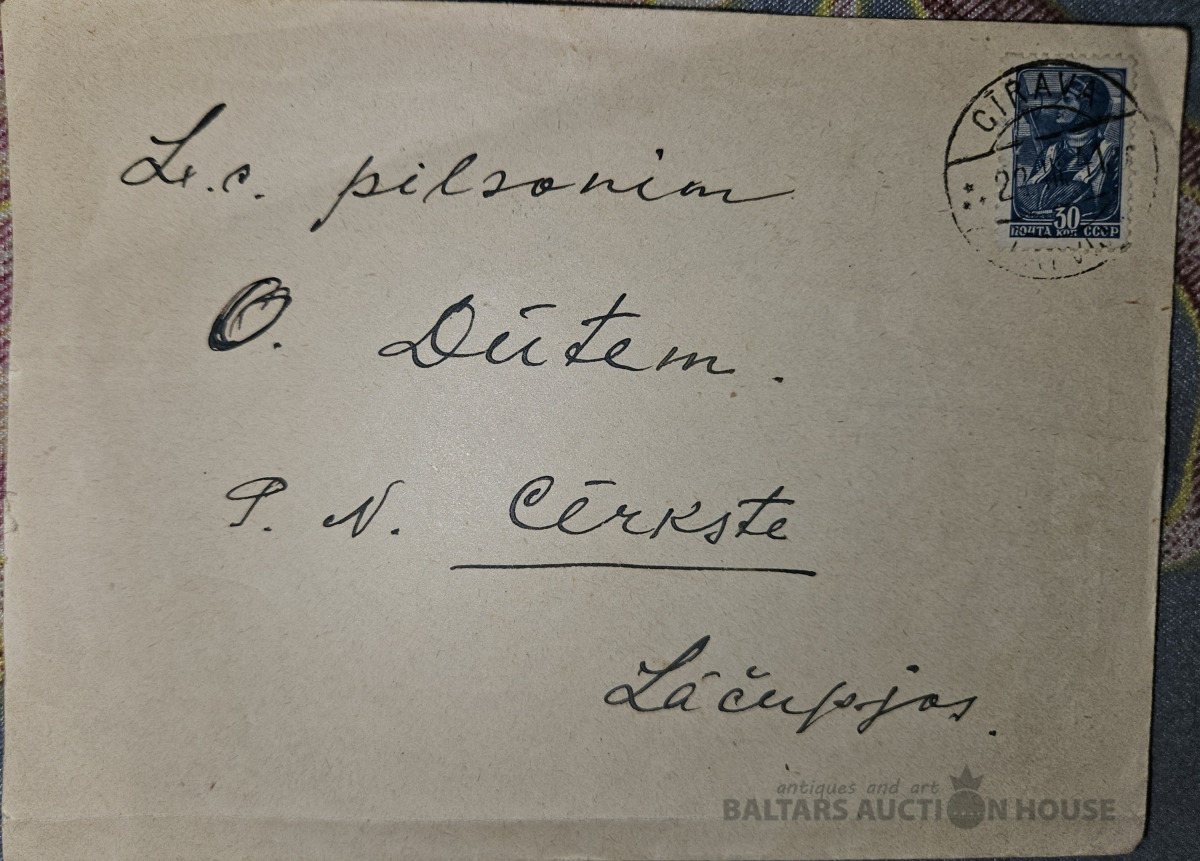 L. c. pilsonim
O. Dūtem.
P. N. Cērkste
Lāčupjos.
CĪRAVA
30
ПОЧТА коп СССР
antiques and art
BALTARS AUCTION HOUSE